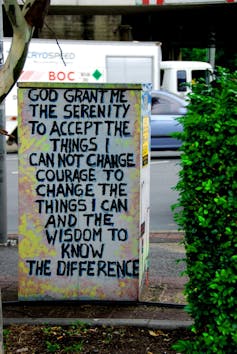 CRYOSPEED
BOC
GOD GRANT ME
THE SERENITY
TO ACCEPT THE
THINGS I
CAN NOT CHANGE
COURAGE TO
CHANGE THE
THINGS I CAN
AND THE
WISDOM TO
KNOW
THE DIFFERENCE